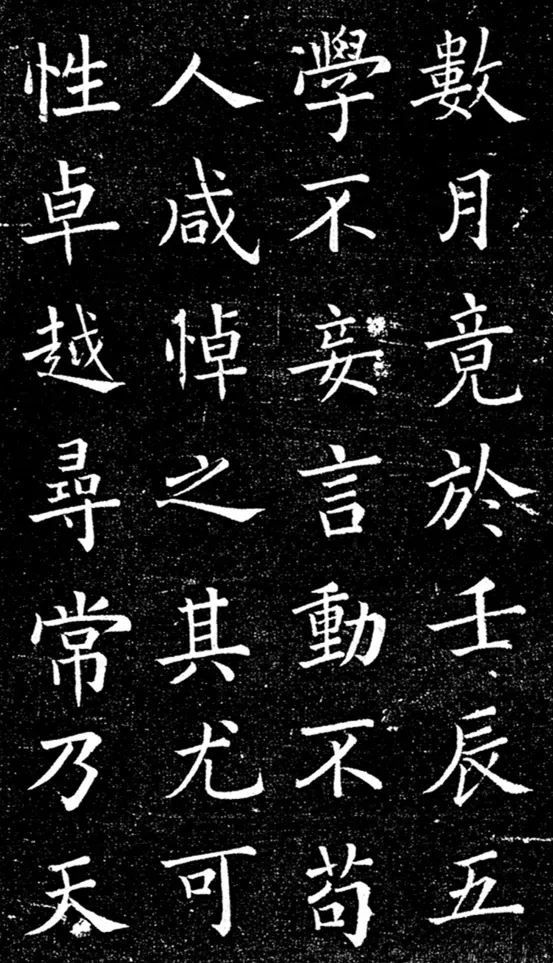 數月竟於壬辰五
學不妄言動不苟
人咸悼之其尤可
性卓越尋常乃天